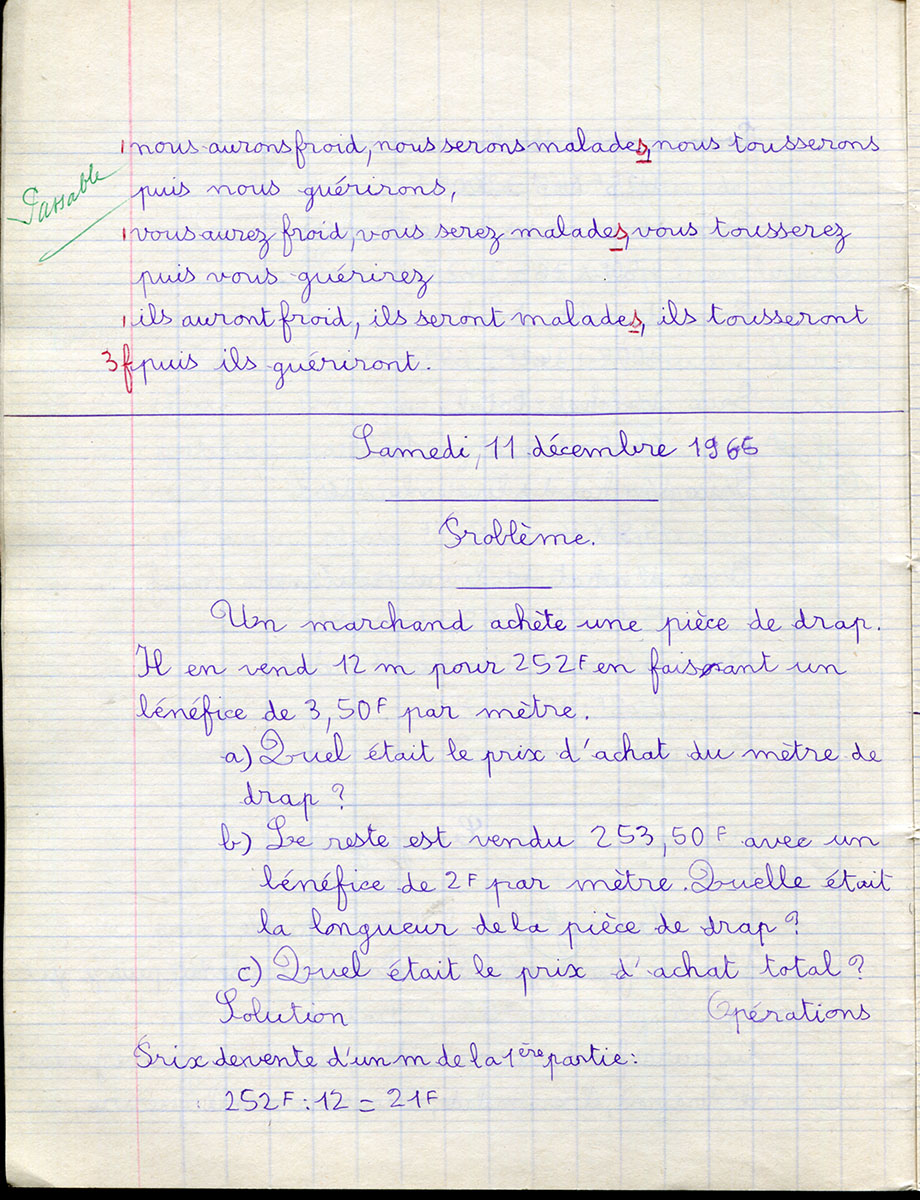 1 nous aurons froid, nous serons malades, nous tousserons
Passable
puis nous guérirons,
1 vous aurez froid, vous serez malades, vous tousserez
puis vous guérirez
1 ils auront froid, ils seront malades, ils tousseront
3f puis ils guériront.
Samedi, 11 décembre 1965
Problème.
Un marchand achète une pièce de drap.
Il en vend 12 m pour 252F en faisant un
bénéfice de 3,50F par mètre.
a) Quel était le prix d'achat du mètre de
drap ?
b) Le reste est vendu 253,50F avec un
bénéfice de 2F par mètre. Quelle était
la longueur de la pièce de drap ?
c) Quel était le prix d'achat total ?
Solution Opérations
Prix de vente d'un m de la 1ère partie :
252F : 12 = 21F